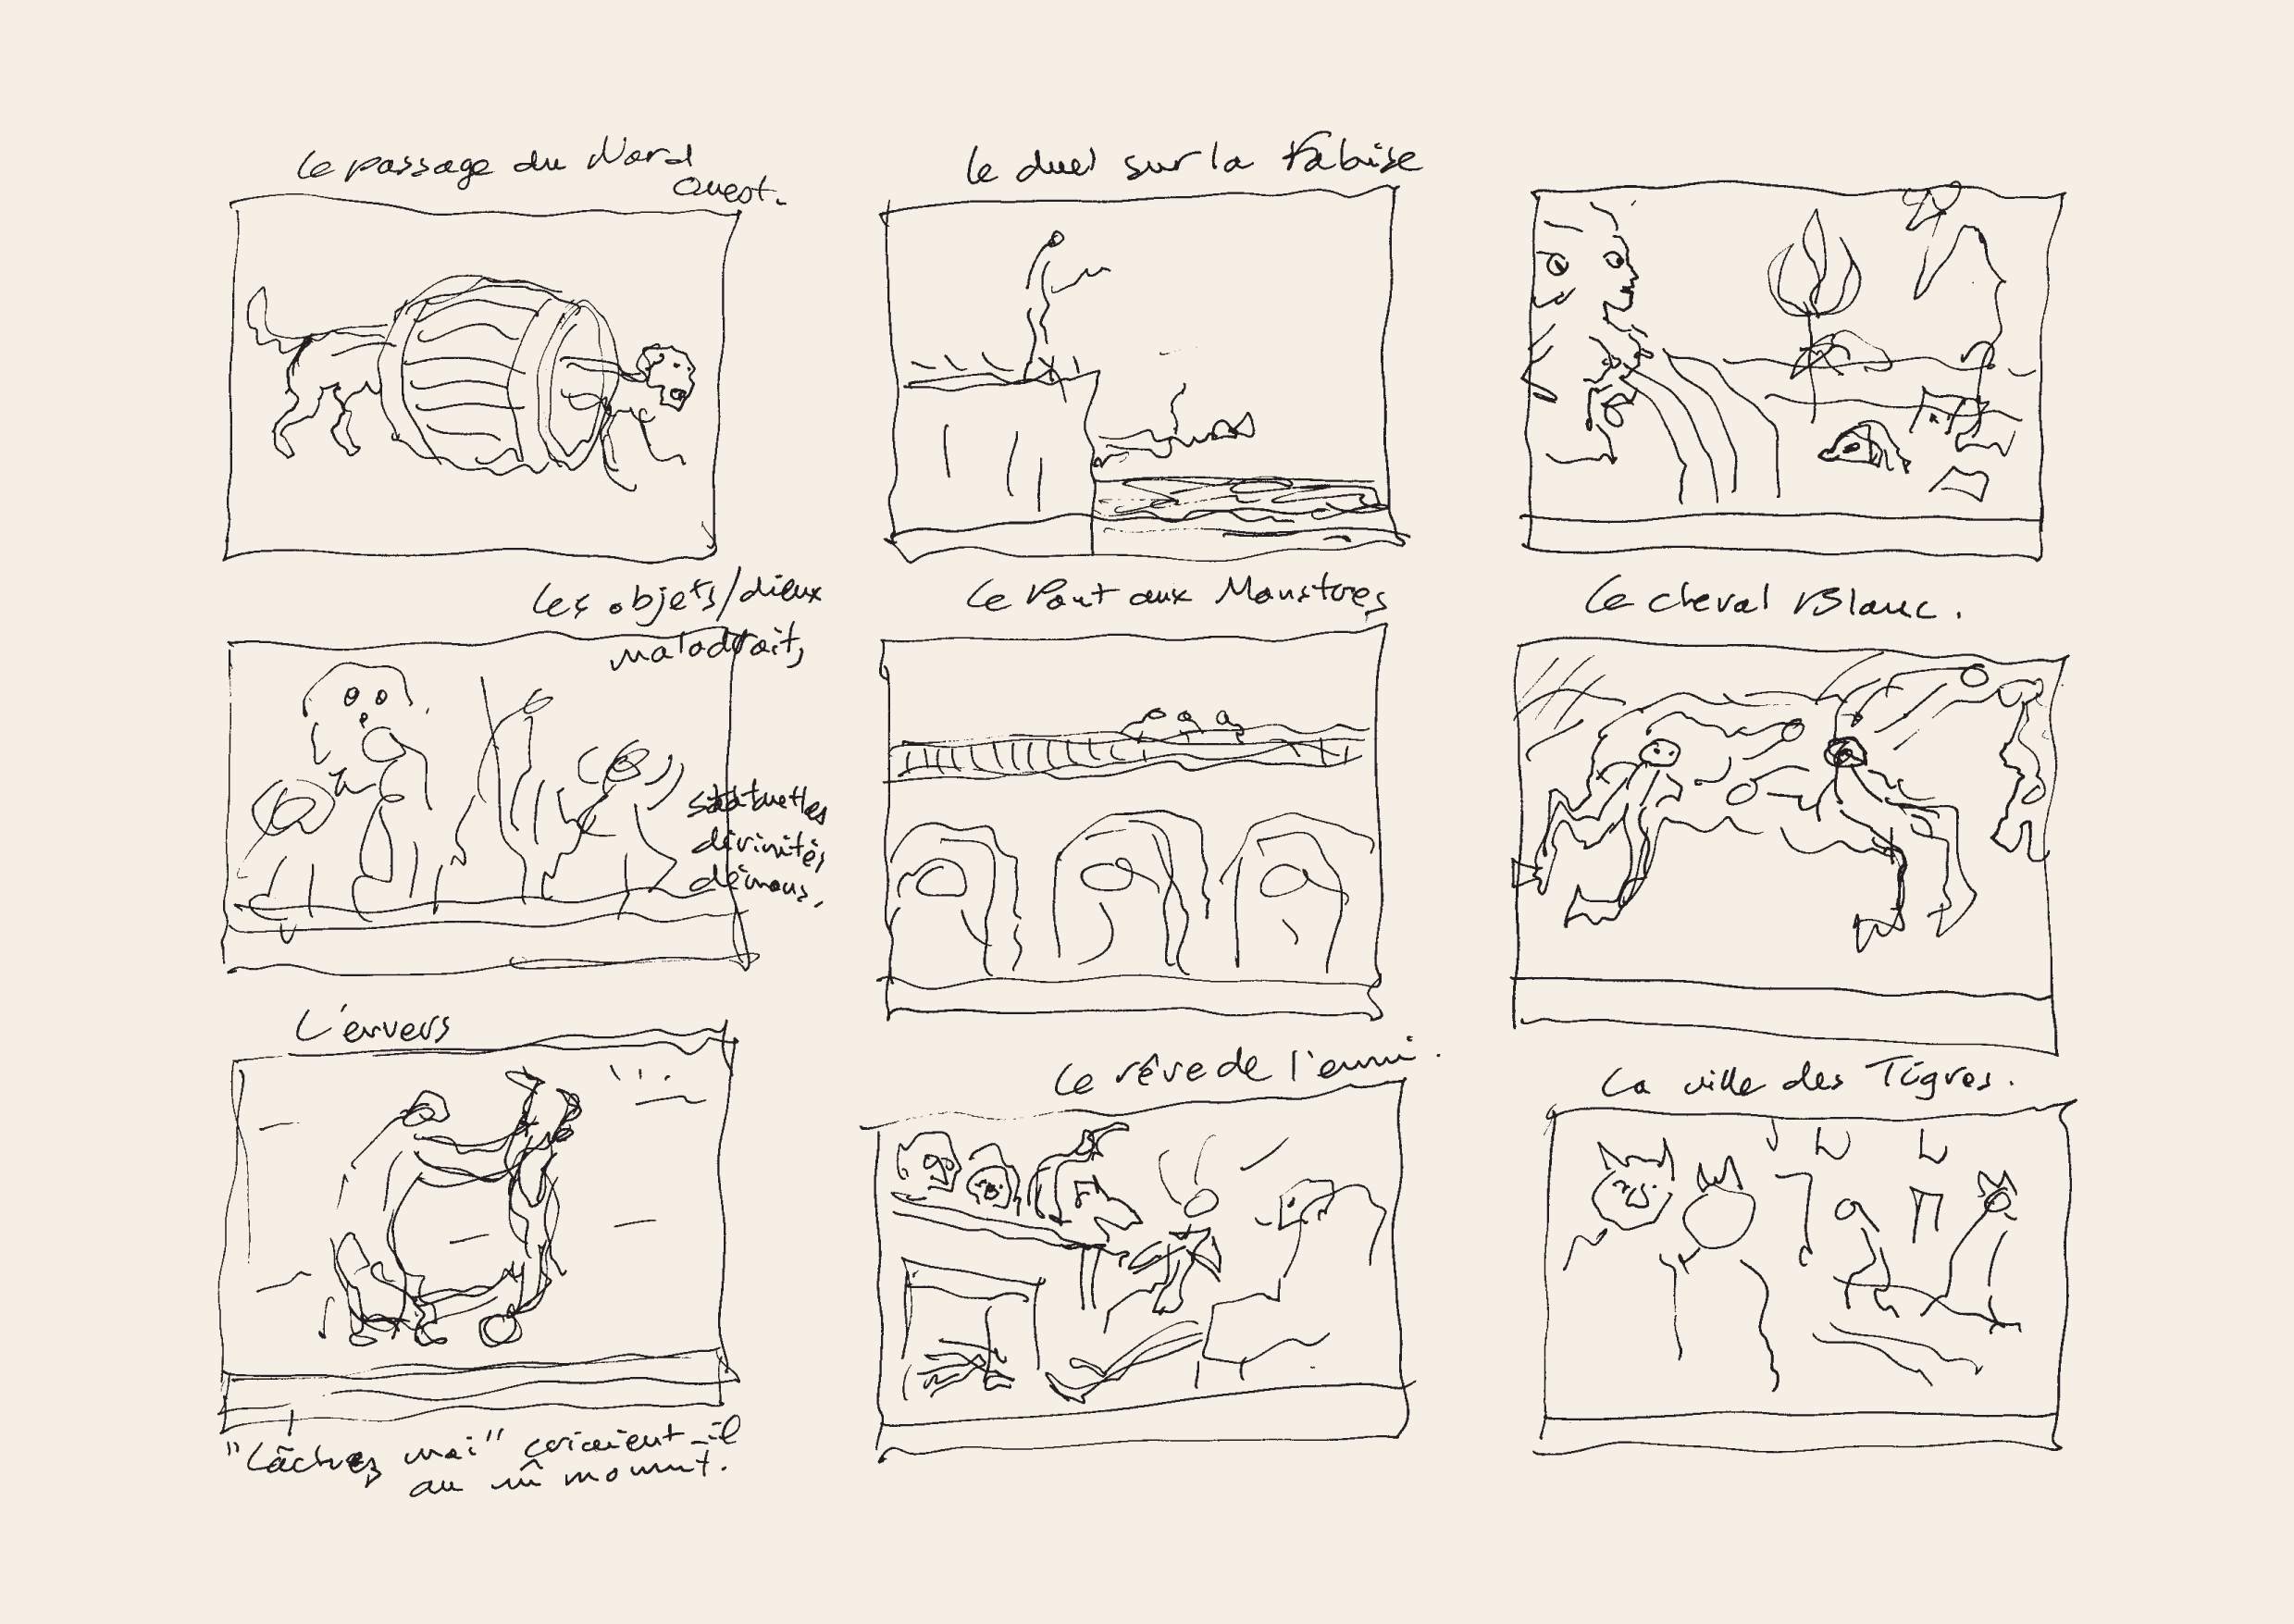 Le passage du Nord
Ouest.
Le duel sur la Falaise
Les objets/dieux
maladroits
statuettes
divinités
démons.
Le Pont aux Monstres
Le cheval Blanc.
L'envers
"Lâchez moi" criaient-il
au m̂ moment.
Le rêve de l'ennui.
La ville des Tigres.